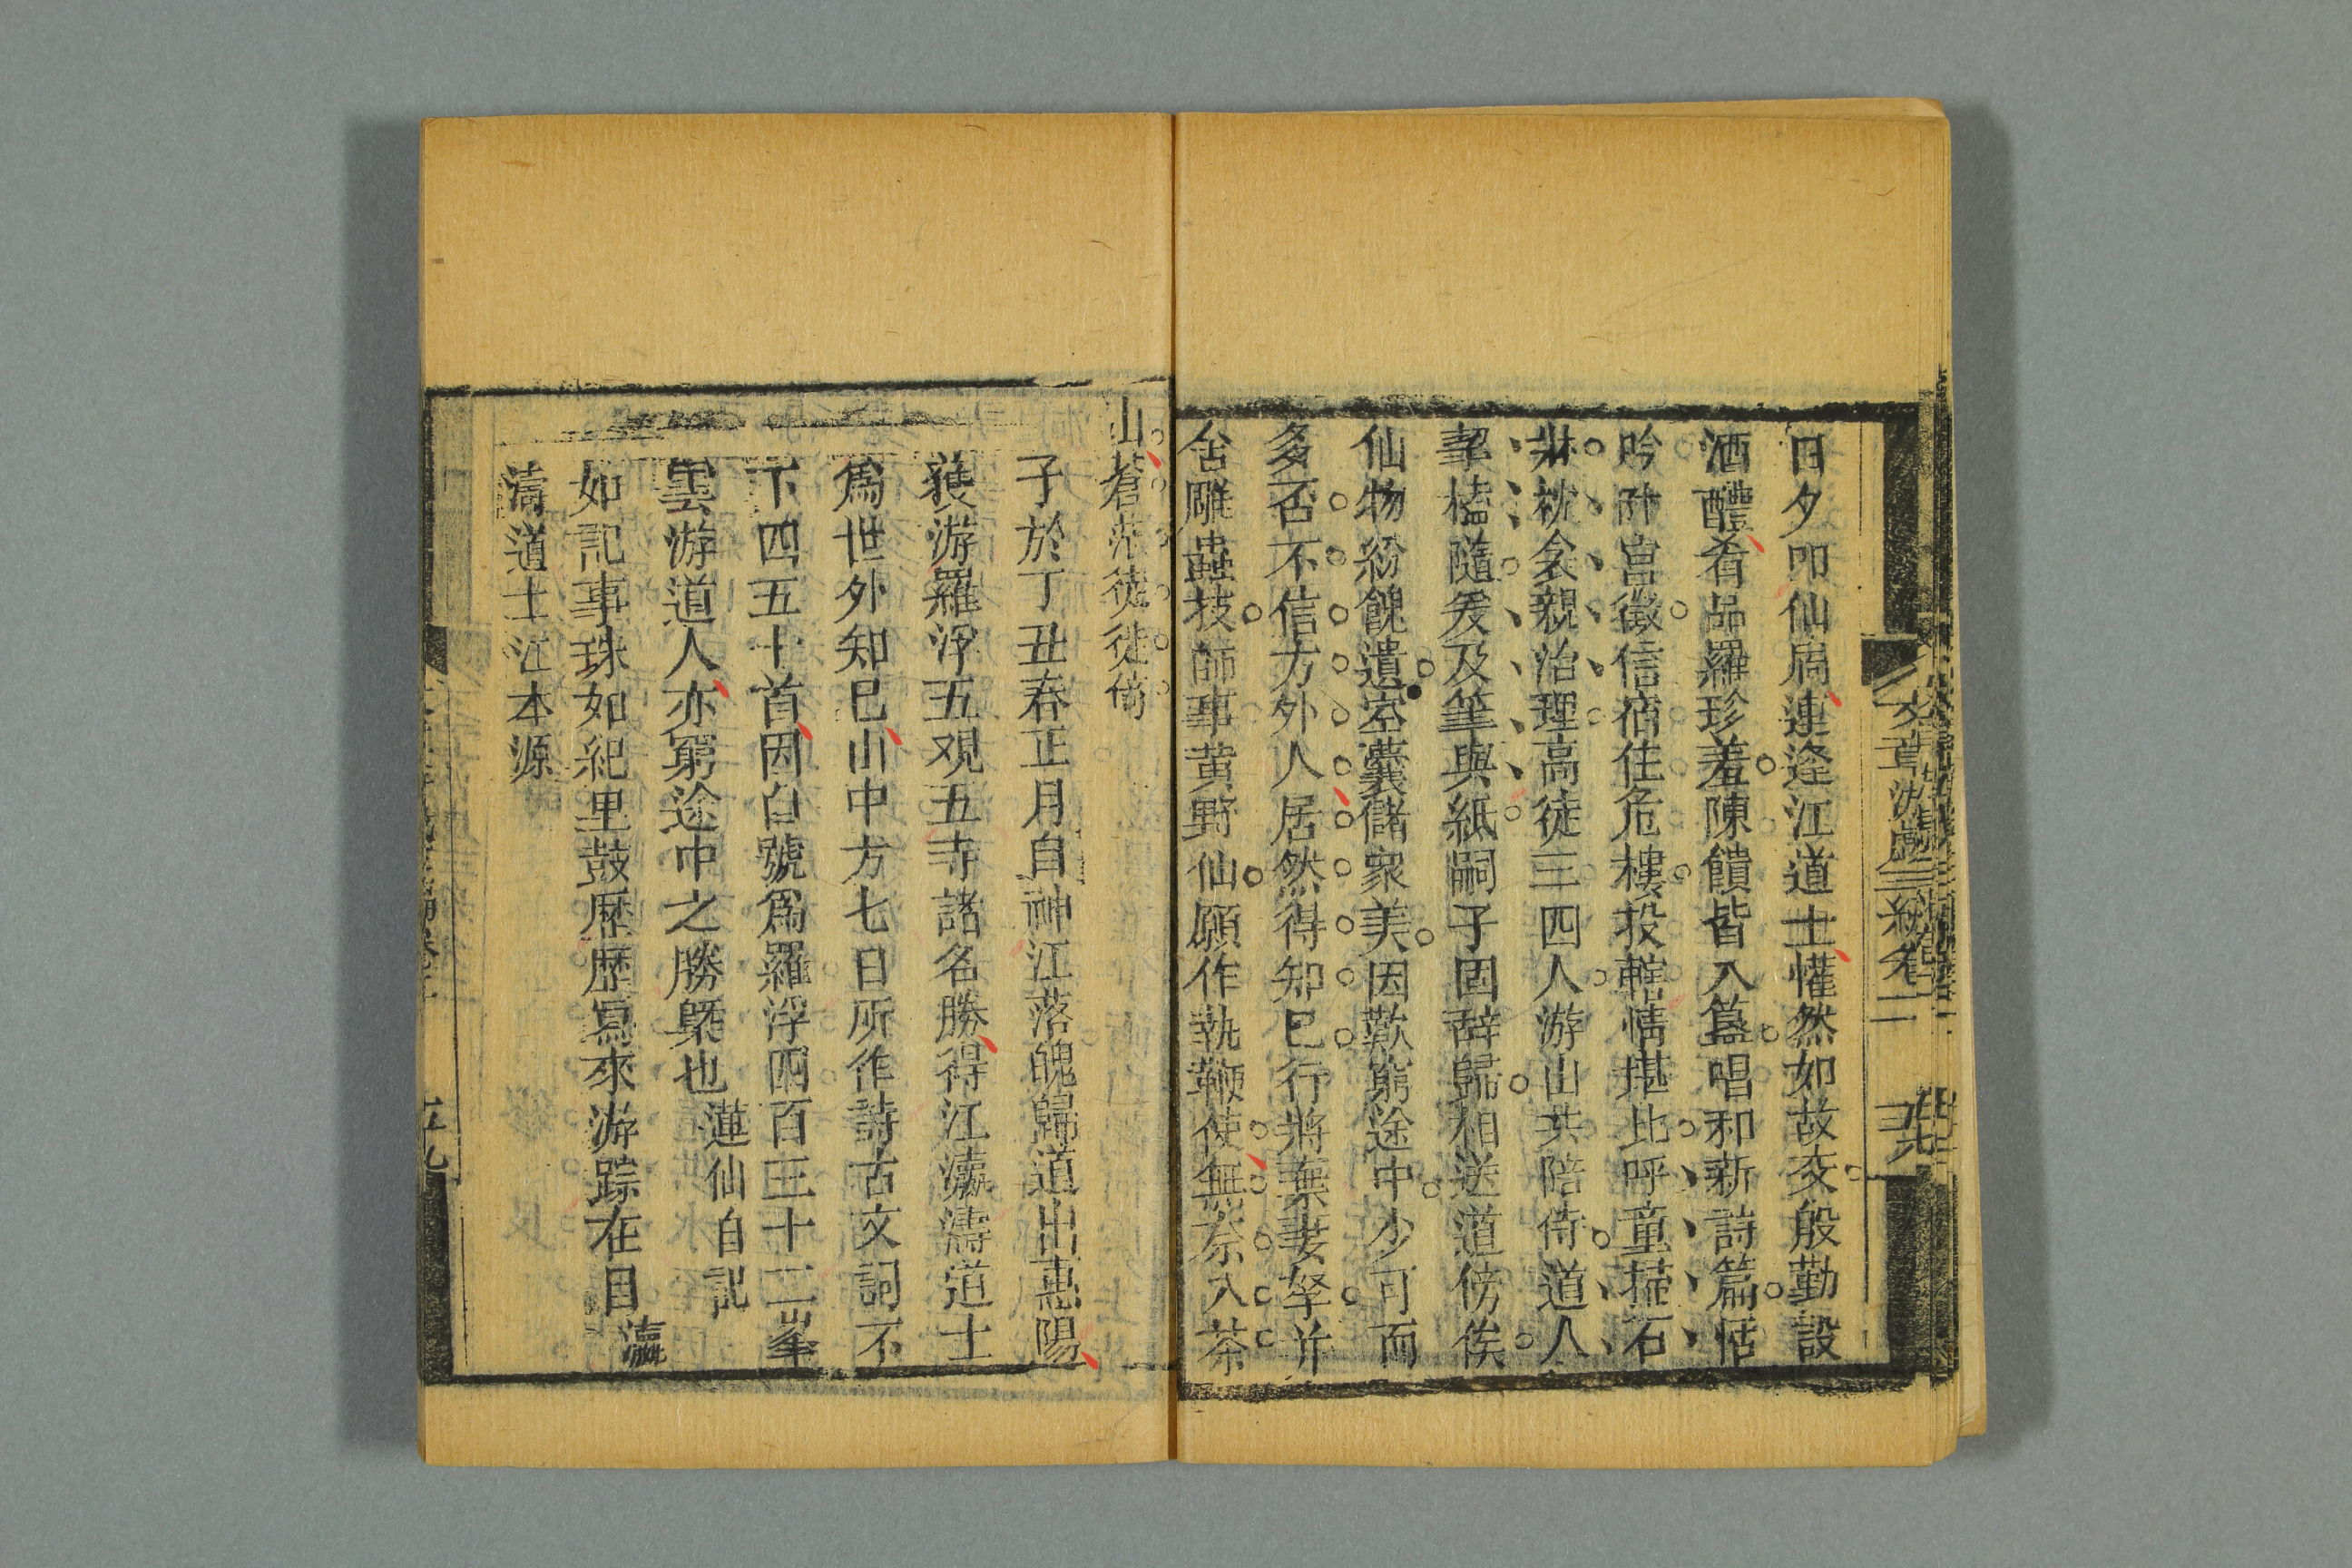 日夕叩仙扃連逢江道士懽然如故交般勤設
酒醴肴品羅珍羞陳饋皆入簋唱和新詩篇恬
吟叶宮徵信宿住危樓投轄情堪比呼童掃石
牀枕衾親治理高徒三四人游山共陪侍道人
挈榼隨爰及筆與紙嗣子固辭歸相送道傍俟
仙物紛餽遺空囊儲衆美因歎窮途中少可而
多否不信方外人居然得知已行將棄妻孥并
舍雕蟲技師事黄野仙願作執鞭使無奈入茶
山蒼茫徒徙倚
子於丁丑春正月自神江落魄歸道出惠陽
獲游羅浮五观五寺諸名勝得江瀛濤道士
爲世外知已山中方七日所作詩古文詞不
下四五十首因自號爲羅浮四百三十二峯
曇游道人亦窮途中之勝槩也 蓮仙自記
如記事珠如紀里鼓歷歷寫來游踪在目 瀛
濤道士江本源